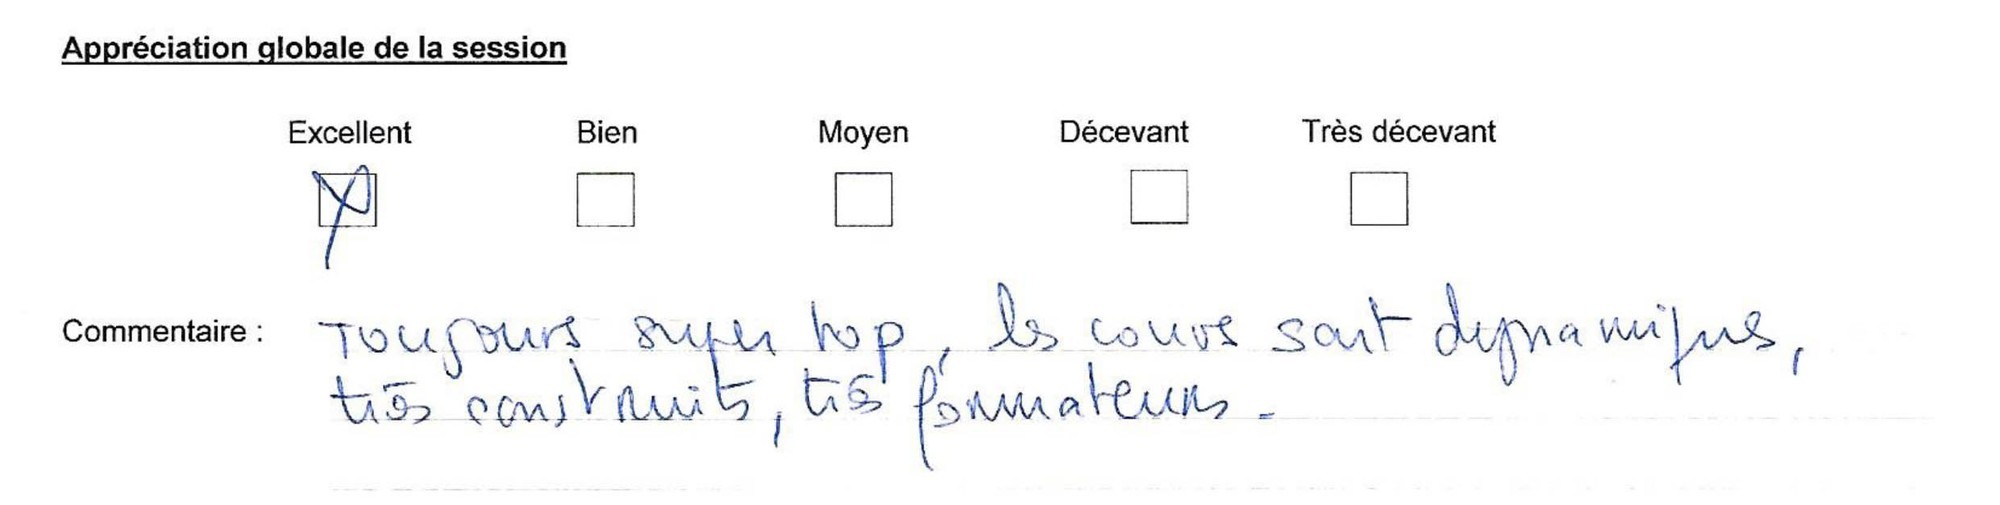 Appréciation globale de la session
Excellent Bien Moyen Décevant Très décevant
Commentaire : Toujours super top, les cours sont dynamiques,
très construits, très formateurs.